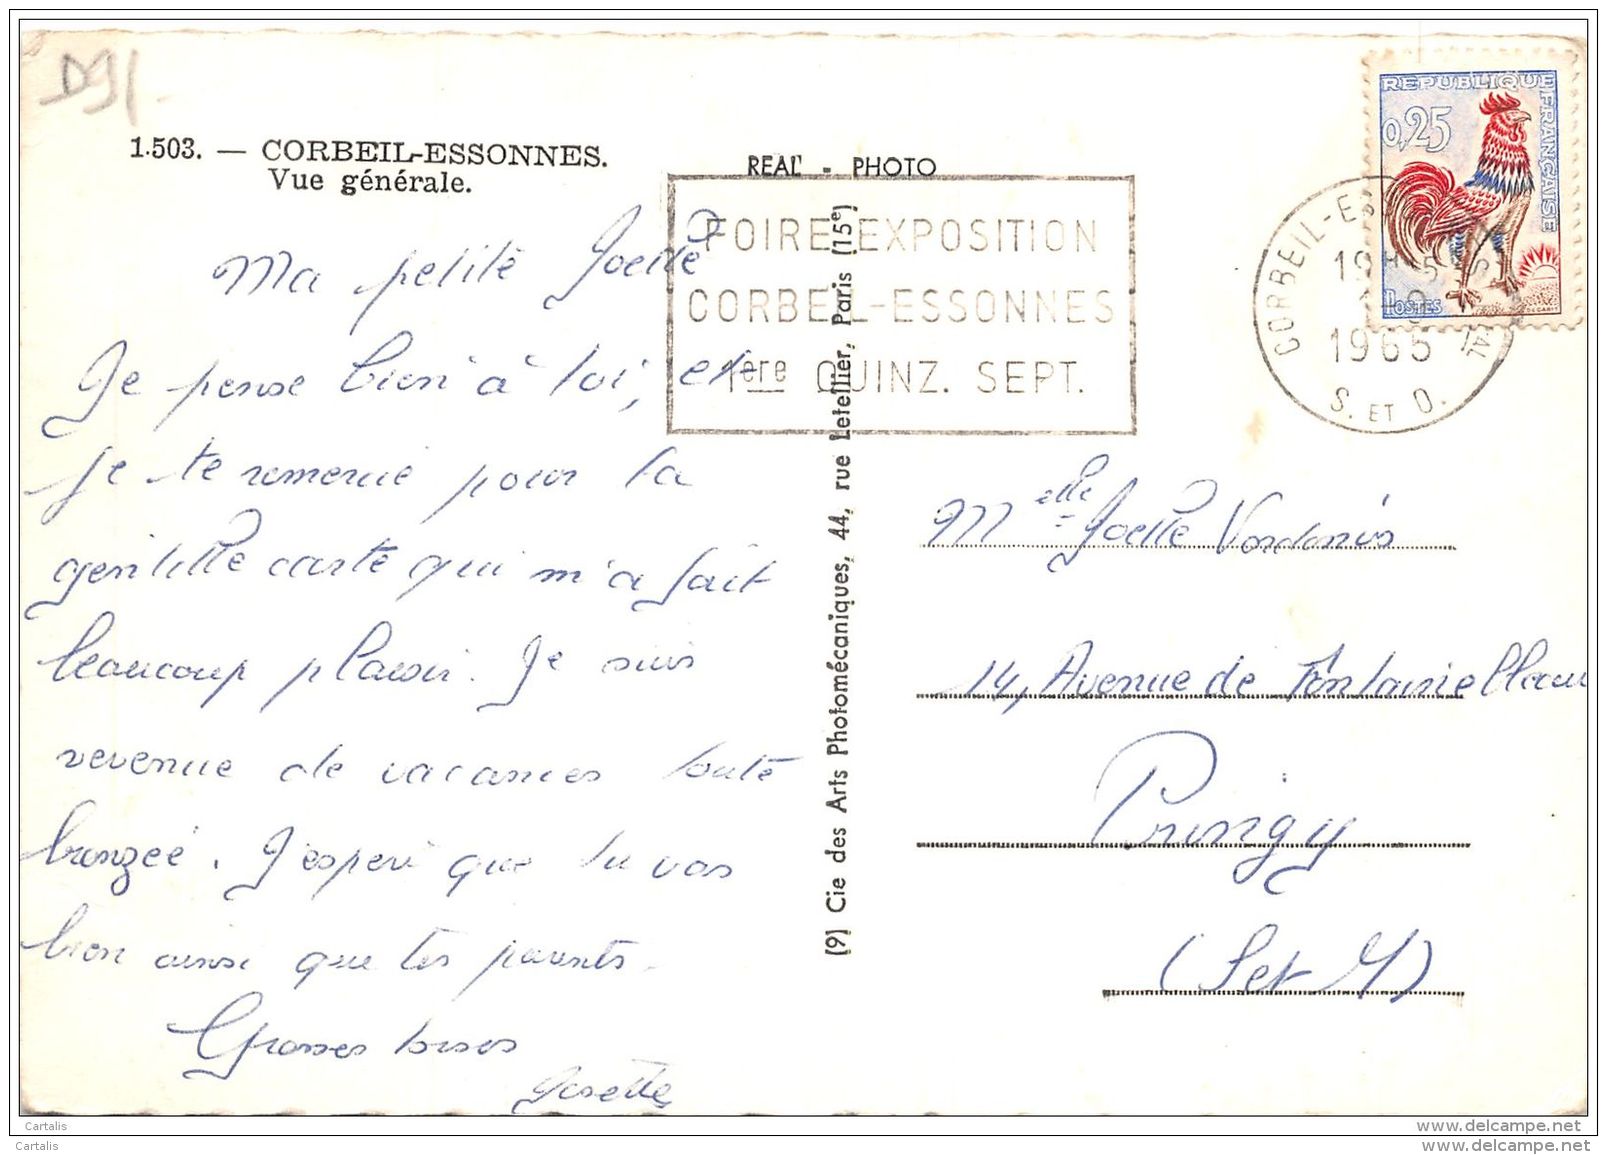 D91
1.503. — CORBEIL-ESSONNES.
Vue générale.
REAL - PHOTO
FOIRE EXPOSITION
CORBEIL-ESSONNES
1ère QUINZ. SEPT.
REPUBLIQUE FRANÇAISE
0,25
POSTES
CORBEIL-ES
1965
S. ET O.
Ma petite Joelle
Je pense bien à toi, et
je te remercie pour la
gentille carte qui m'a fait
beaucoup plaisir. Je suis
revenue de vacances toute
bronzée. J'espère que tu vas
bien ainsi que tes parents.
Grosses bises
Josette
(9) Cie des Arts Photomécaniques, 44, rue Letellier, Paris (15e)
Melle Joelle
14, Avenue de Fontainebleau
Pringy
(S et M)
Cartalis
Cartalis
www.delcampe.net
www.delcampe.net